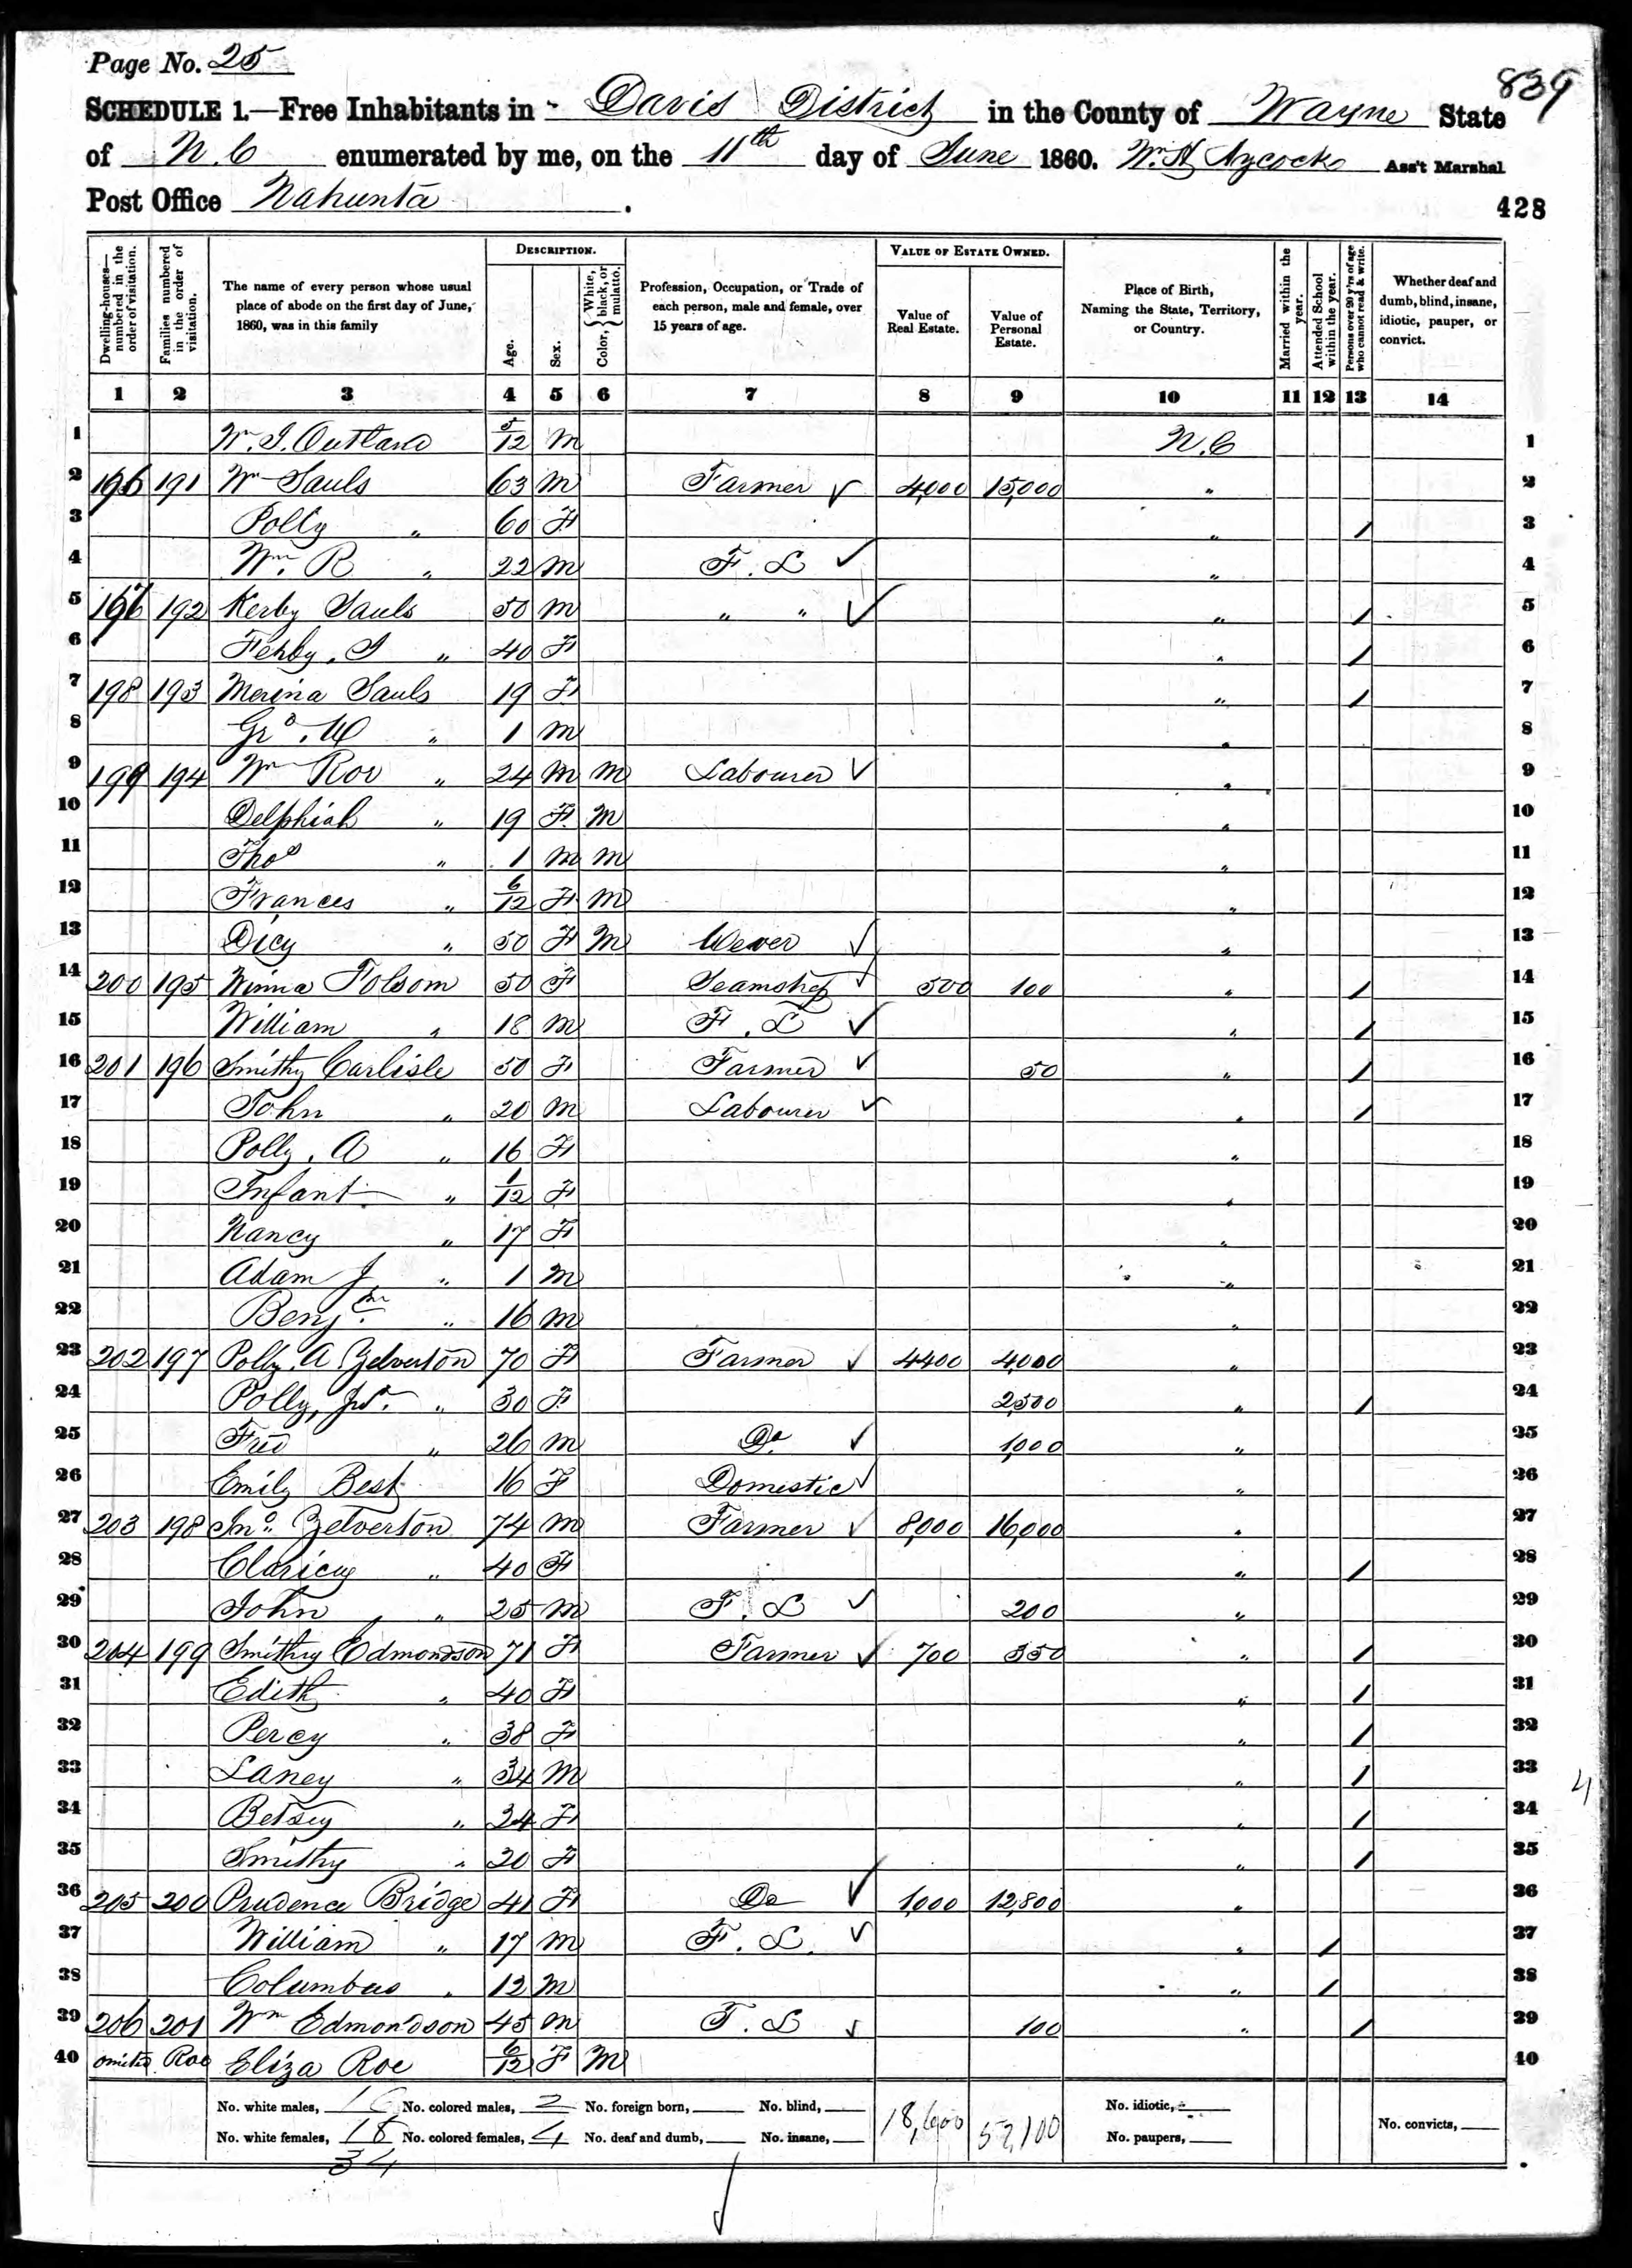 Page No. 25
839
SCHEDULE 1.—Free Inhabitants in Davis District in the County of Wayne State
of N.C enumerated by me, on the 11th day of June 1860. Wm. H Aycock Ass't Marshal
Post Office Nahunta .
428
Dwelling-houses—numbered in the order of visitation. Families numbered in the order of visitation. The name of every person whose usual place of abode on the first day of June, 1860, was in this family DESCRIPTION. Age. Sex. Color, { White, black, or mulatto. Profession, Occupation, or Trade of each person, male and female, over 15 years of age. VALUE OF ESTATE OWNED. Value of Real Estate. Value of Personal Estate. Place of Birth, Naming the State, Territory, or Country. Married within the year. Attended School within the year. Persons over 20 y'rs of age who cannot read & write. Whether deaf and dumb, blind, insane, idiotic, pauper, or convict.
1 2 3 4 5 6 7 8 9 10 11 12 13 14
1 W. J. Outland 5/12 M N.C 1
2 196 191 Wm Sauls 63 M Farmer ✓ 4,000 15,000 " 2
3 Polly " 60 F " / 3
4 Wm. R " 22 M F. L ✓ " 4
5 192 Kerby Sauls 50 M " " ✓ " / 5
6 " 40 F " / 6
7 198 193 Merina Sauls 19 F " / 7
8 Geo. W " 1 M " 8
9 199 194 Wm Roe " 24 M M Labourer ✓ " 9
10 Delphiah " 19 F M " 10
11 Thos " 1 M M " 11
12 Frances " 6/12 F M " 12
13 Dicy " 50 F M Wever ✓ " 13
14 200 195 Winna Folsom 50 F ✓ 500 100 " / 14
15 William " 18 M F. L ✓ " / 15
16 201 196 Smithy Carlisle 50 F Farmer ✓ 50 " / 16
17 John " 20 M Labourer ✓ " / 17
18 Polly. A " 16 F " 18
19 Infant " 1/12 F " 19
20 Nancy " 17 F " 20
21 Adam J " 1 M " 21
22 Benjm. " 16 M " 22
23 202 197 Polly. A Yelverton 70 F Farmer ✓ 4400 4,000 " 23
24 Polly, Jr. " 30 F 2,500 " / 24
25 Fred " 26 M Do ✓ 1,000 " 25
26 Emily Best 16 F Domestic ✓ " 26
27 203 198 Jno. Yelverton 74 M Farmer ✓ 8,000 16,000 " 27
28 Claricy " 40 F " / 28
29 John " 25 M F. L ✓ 200 " 29
30 204 199 Smithy Edmondson 71 F Farmer ✓ 700 350 " / 30
31 Edith " 40 F " / 31
32 Percy " 38 F " / 32
33 Laney " 34 M " / 33
34 Betsey " 24 F " / 34
35 Smithy " 20 F " / 35
36 205 200 Prudence Bridge 41 F Do ✓ 1,000 12,800 " 36
37 William " 17 M F. L. ✓ " / 37
38 Columbus " 12 M " / 38
39 206 201 Wm Edmondson 45 M F. L ✓ 100 " / 39
40 Roe Eliza Roe 6/12 F M 40
4
No. white males, 16 No. colored males, 2 No. foreign born, No. blind, 18,600 52,100 No. idiotic,
No. white females, 18 No. colored females, 4 No. deaf and dumb, No. insane, No. paupers, No. convicts,
34